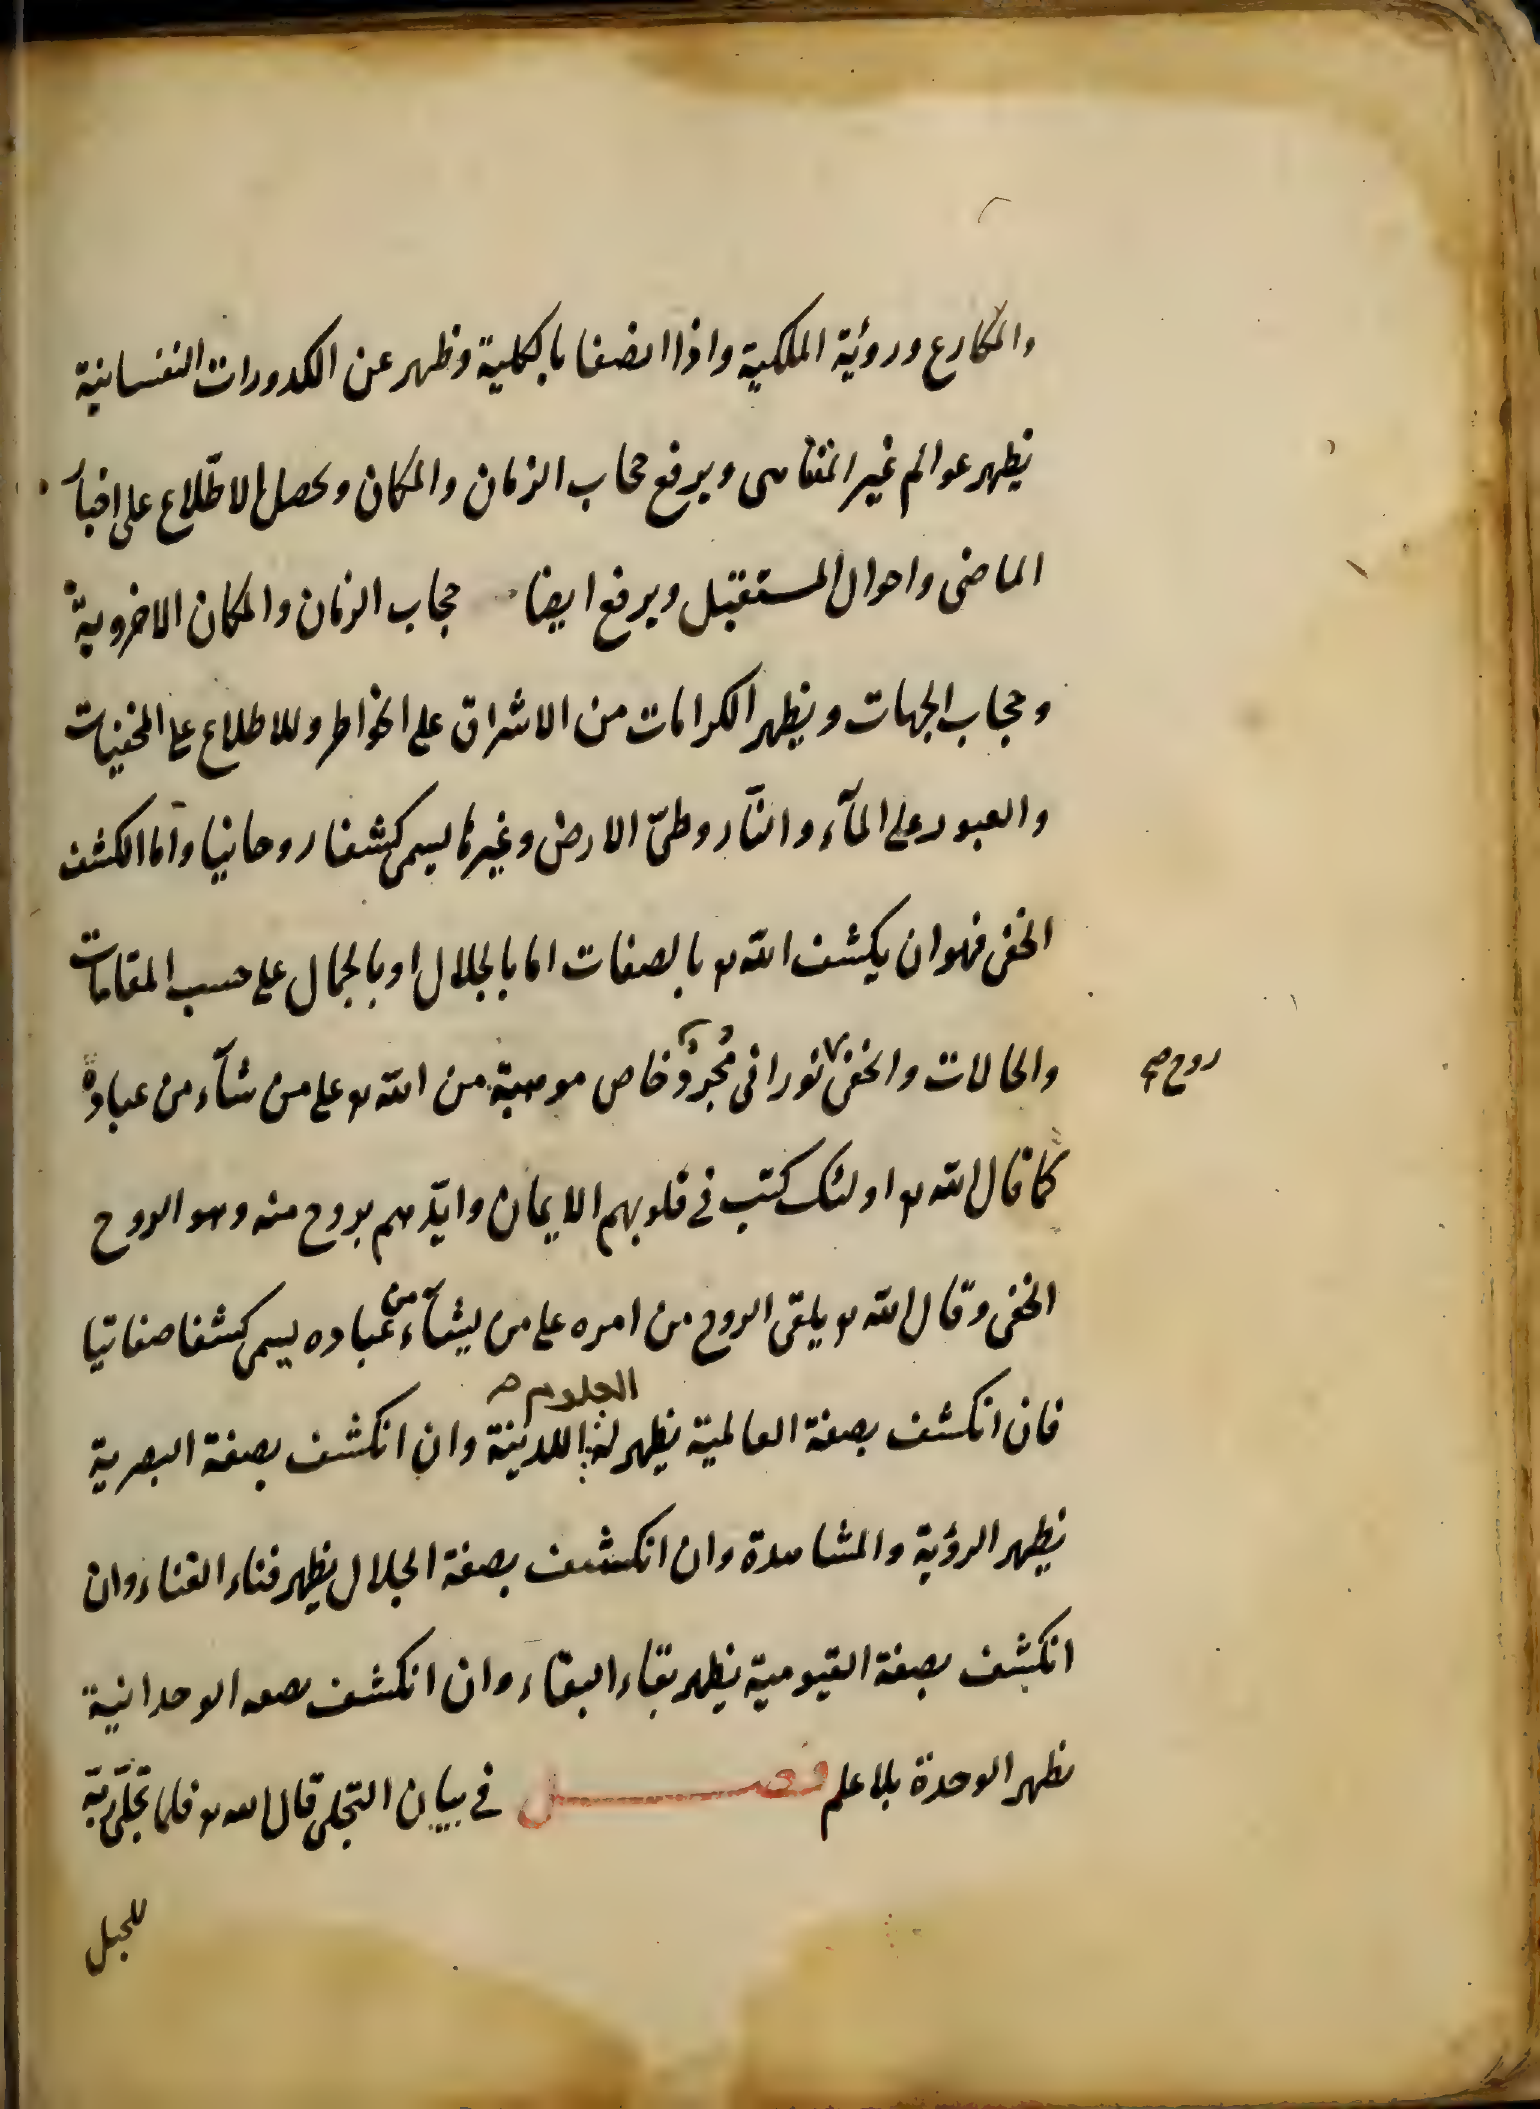 والمكارع ورؤية الملكية واذا اتصفا بالكلية وظهر عن الكدورات النفسانية
يظهر عوالم غير المتناهى ويرفع حجاب الزمان والمكان ويحصل الاطّلاع على اخبار
الماضى واحوال المستقبل ويرفع ايضا حجاب الزمان والمكان الاخروية
وحجاب الجهات ويظهر الكرامات من الاشراق على الخواطر وللاطلاع على المخفيات
والعبور على المآء والنار وطىّ الارض وغيرها يسمى كشفا روحانيا وامّا الكشف
الخفى فهو ان يكشف الله تع بالصفات اما بالجلال او بالجمال على حسب المقامات
والحالات والخفى نورانى مُجردٌ خاص موهبة من الله تع على من شآء من عباده
روح صح
كما قال الله تع اولئك كتب فى قلوبهم الايمان وايّدهم بروح منه وهو الروح
الخفى وقال الله تع يلقى الروح من امره على من يشآء من عباده يسمى كشفا صفاتيا
فان انكشف بصفة العالمية يظهر له العلوم اللدنية وان انكشف بصفة البصرية
يظهر الرؤية والمشاهدة وان انكشف بصفة الجلال يظهر فناء الفناء وان
انكشف بصفة القيومية يظهر بقاء البقاء وان انكشف بصفة الوحدانية
يظهر الوحدة بلا علم فصل فى بيان التجلى قال الله تع فلما تجلّى ربّه
للجبل